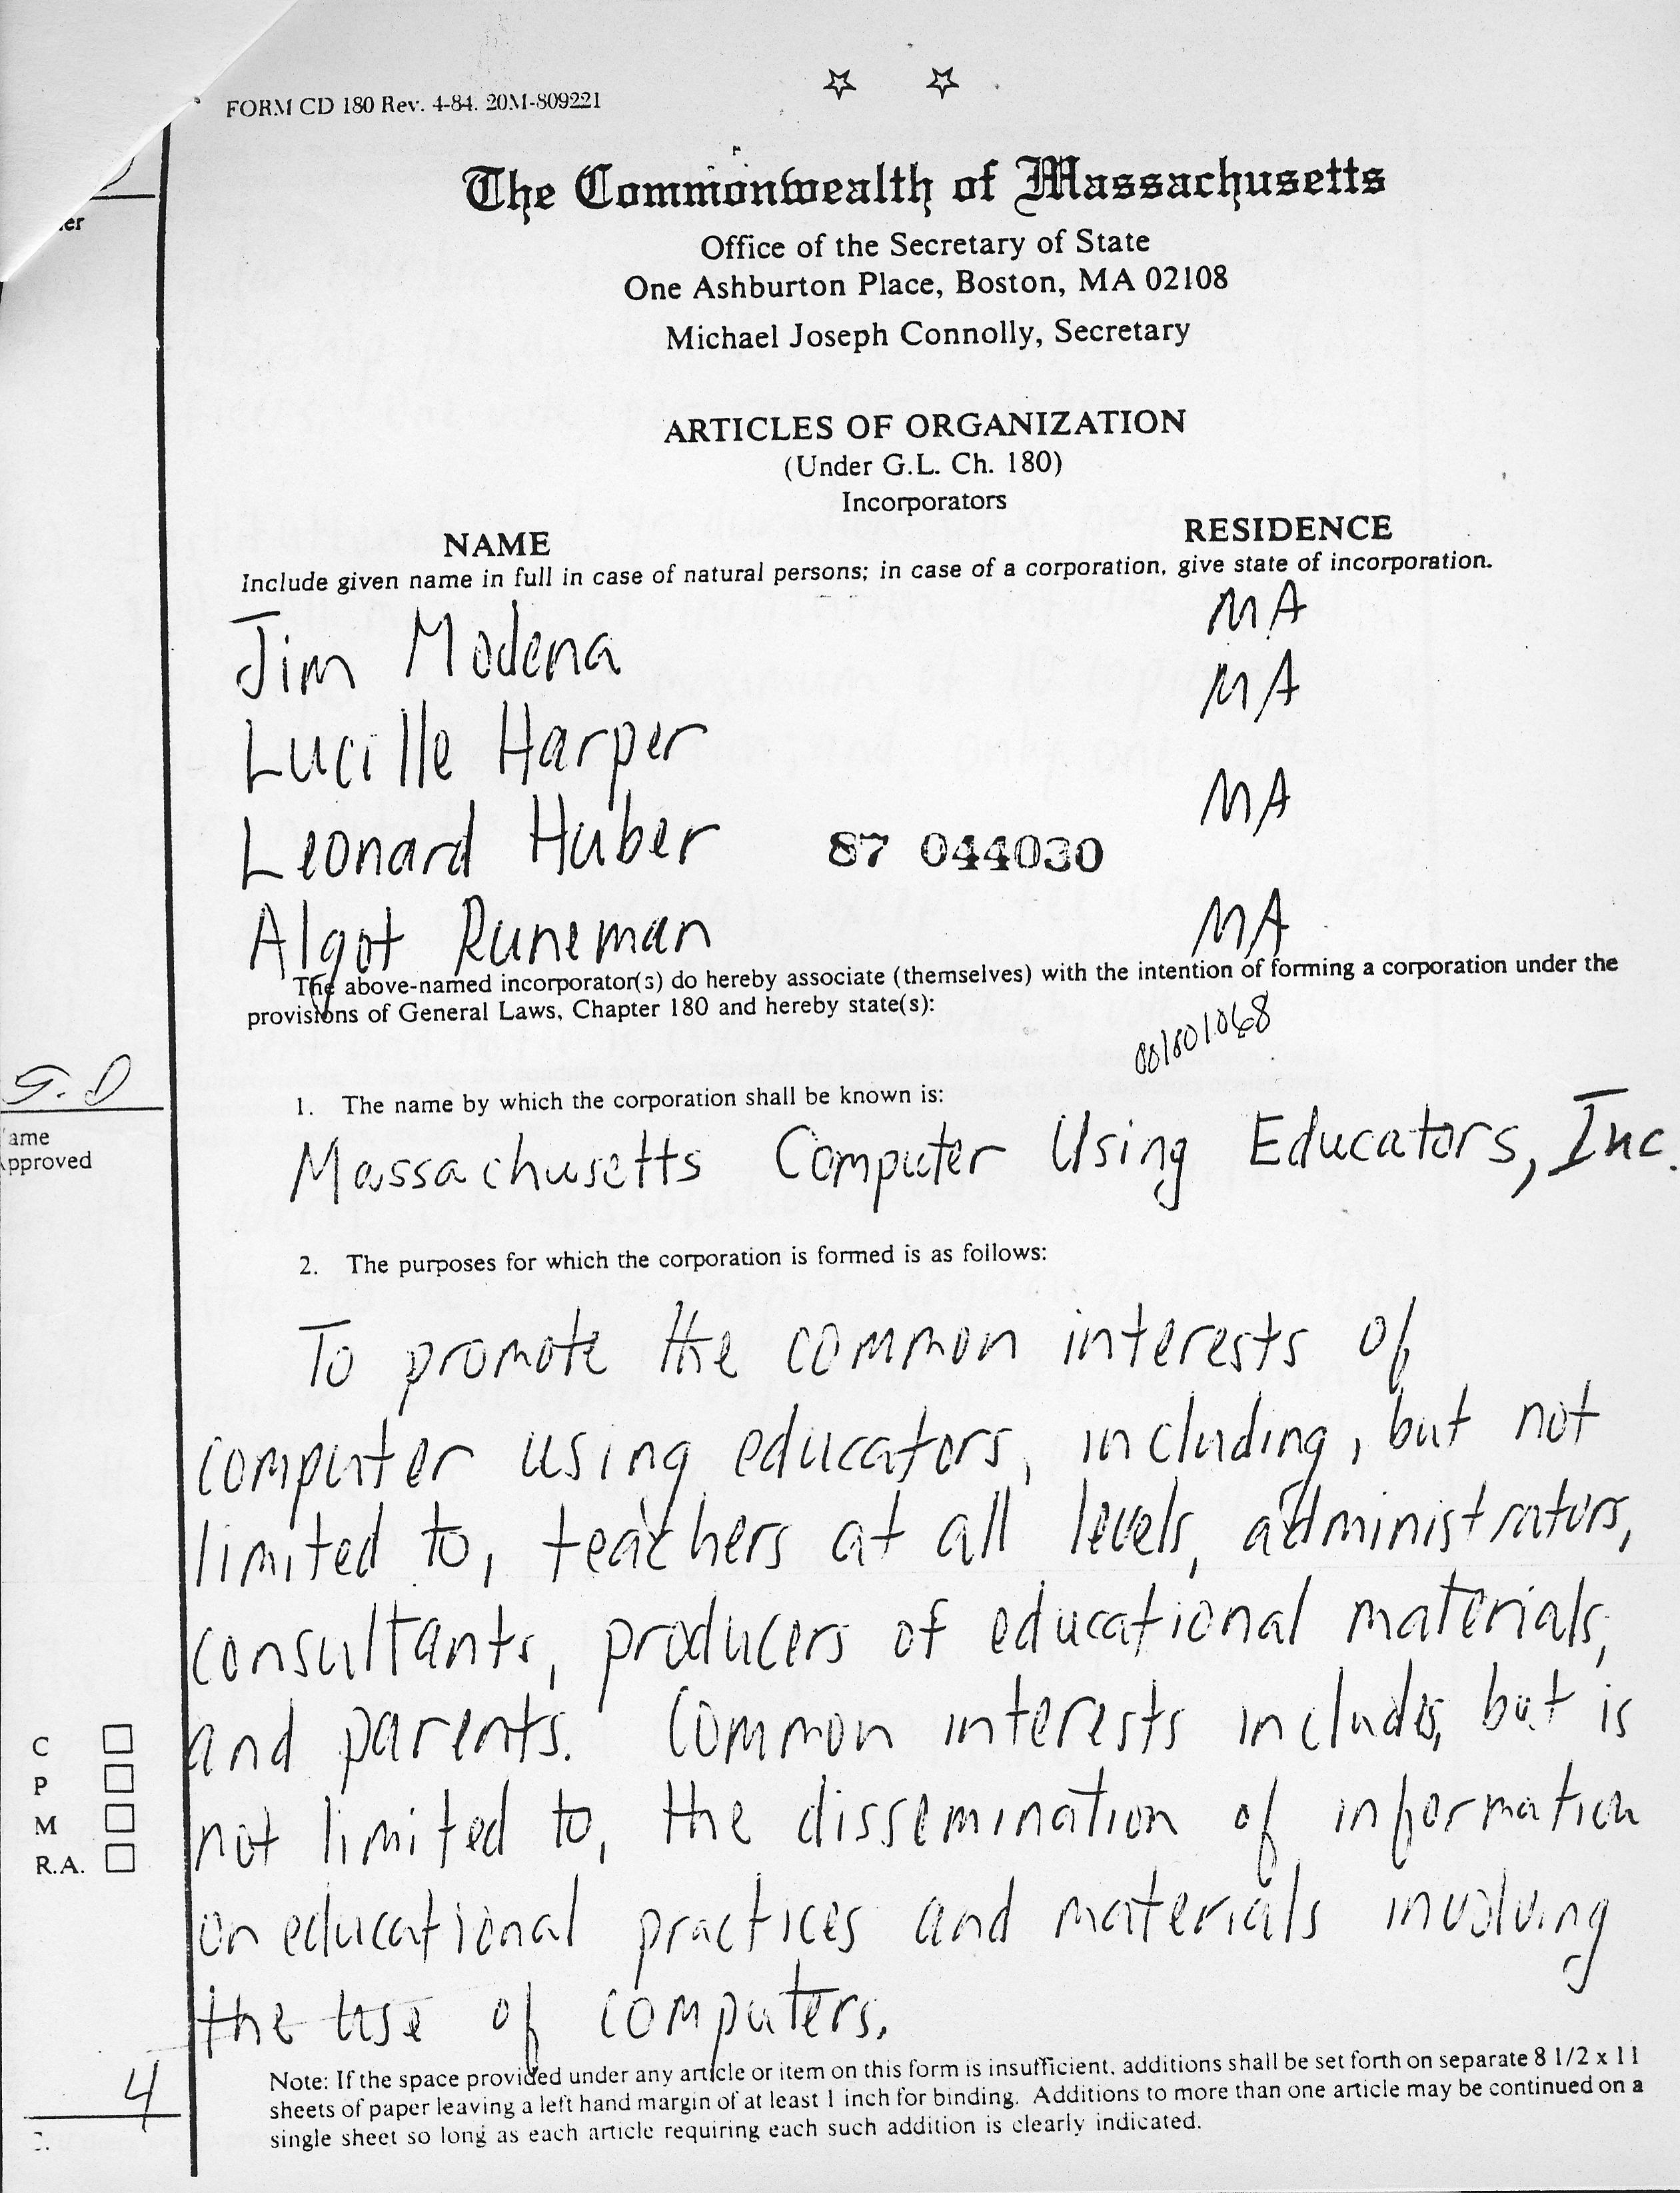 FORM CD 180 Rev. 4-84. 20M-809221
The Commonwealth of Massachusetts
Office of the Secretary of State
One Ashburton Place, Boston, MA 02108
Michael Joseph Connolly, Secretary
ARTICLES OF ORGANIZATION
(Under G.L. Ch. 180)
Incorporators
NAME RESIDENCE
Include given name in full in case of natural persons; in case of a corporation, give state of incorporation.
Jim Modena MA
Lucille Harper MA
Leonard Huber MA
87 044030
Algot Runeman MA
The above-named incorporator(s) do hereby associate (themselves) with the intention of forming a corporation under the
provisions of General Laws, Chapter 180 and hereby state(s):
001801068
1. The name by which the corporation shall be known is:
ame
pproved
Massachusetts Computer Using Educators, Inc.
2. The purposes for which the corporation is formed is as follows:
To promote the common interests of
computer using educators, including, but not
limited to, teachers at all levels, administrators,
consultants, producers of educational materials,
and parents. Common interests includes, but is
not limited to, the dissemination of information
on educational practices and materials involving
the use of computers.
C
P
M
R.A.
4
Note: If the space provided under any article or item on this form is insufficient, additions shall be set forth on separate 8 1/2 x 11
sheets of paper leaving a left hand margin of at least 1 inch for binding. Additions to more than one article may be continued on a
single sheet so long as each article requiring each such addition is clearly indicated.